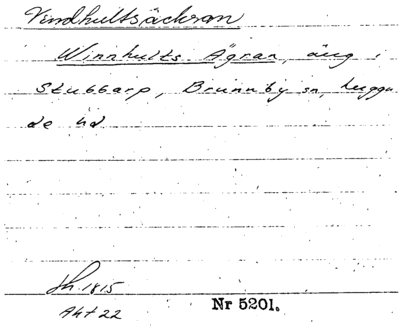 Vindhultsäckran
Winnhults Ägran, äng i
Stubbarp, Brunnby sn, Luggu
de hd
Jh. 1815
Akt 22
Nr 5201.